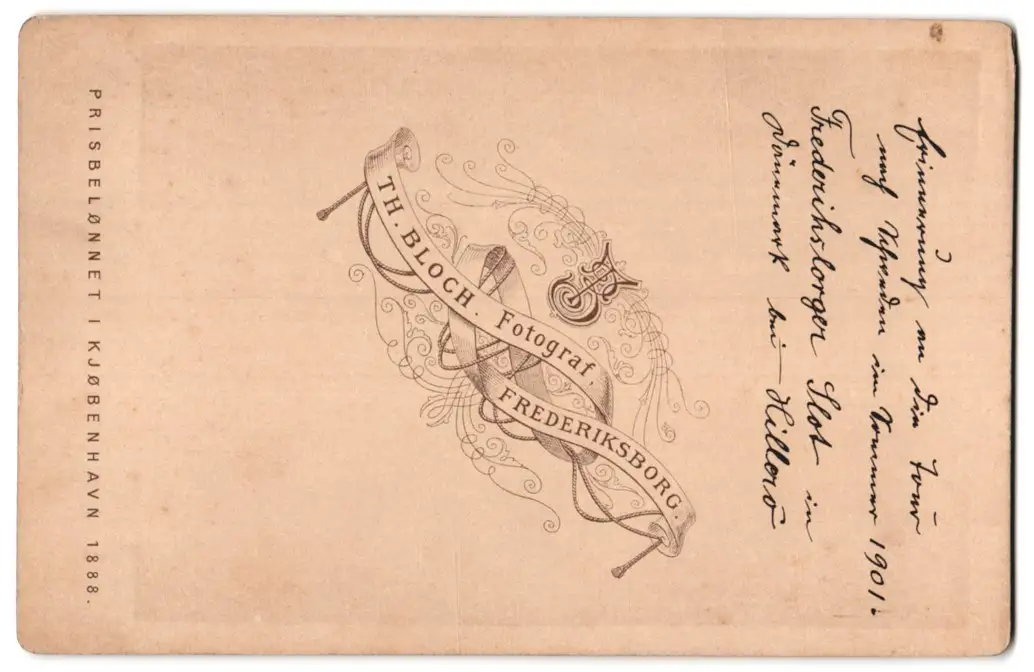 Erinnerung an die Tour
nach Schweden im Sommer 1901.
Frederiksborger Slot in
Dänemark bei Hilleröd
TH. BLOCH. Fotograf,
FREDERIKSBORG.
PRISBELØNNET I KJØBENHAVN 1888.